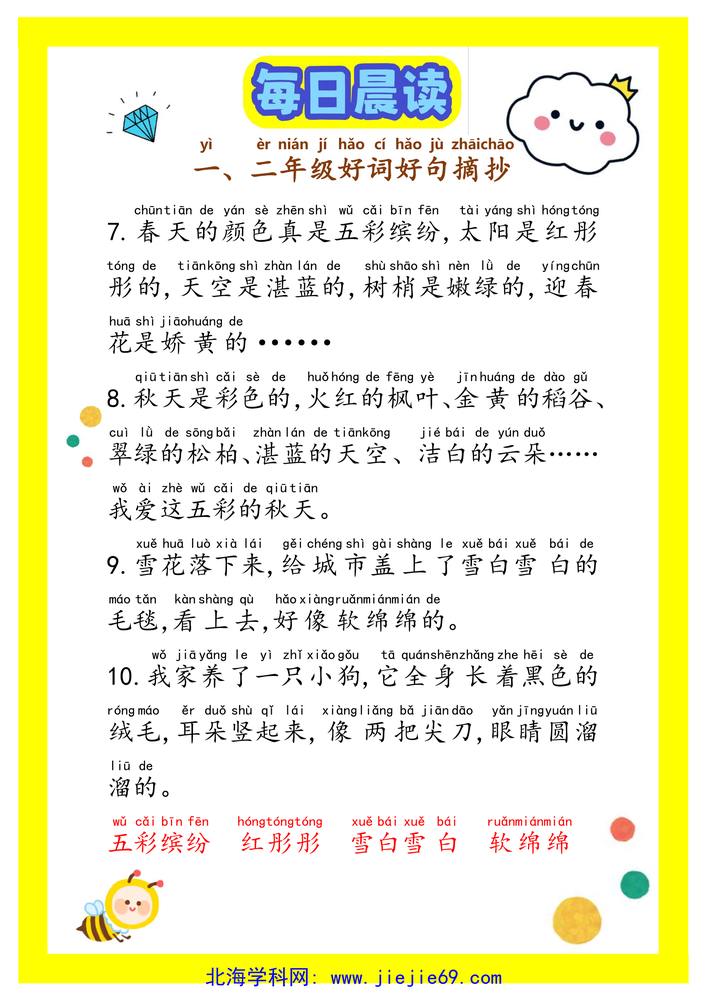 每日晨读
yì èr nián jí hǎo cí hǎo jù zhāichāo
一、二年级好词好句摘抄
chūntiān de yán sè zhēnshì wǔ cǎi bīn fēn tài yáng shì hóngtóng
7. 春天的颜色真是五彩缤纷,太阳是红彤
tóng de tiānkōng shì zhàn lán de shù shāo shì nèn lǜ de yíngchūn
彤的,天空是湛蓝的,树梢是嫩绿的,迎春
huā shì jiāohuáng de
花是娇黄的······
qiūtiānshì cǎi sè de huǒhóng de fēng yè jīnhuáng de dào gǔ
8. 秋天是彩色的,火红的枫叶、金黄的稻谷、
cuì lǜ de sōngbǎi zhàn lán de tiānkōng jié bái de yún duǒ
翠绿的松柏、湛蓝的天空、洁白的云朵……
wǒ ài zhè wǔ cǎi de qiūtiān
我爱这五彩的秋天。
xuě huā luò xià lái gěi chéng shì gài shàng le xuě bái xuě bái de
9. 雪花落下来,给城市盖上了雪白雪白的
máo tǎn kàn shàng qù hǎo xiàngruǎnmiánmián de
毛毯,看上去,好像软绵绵的。
wǒ jiāyǎng le yì zhǐ xiǎogǒu tā quánshēnzhǎng zhe hēi sè de
10. 我家养了一只小狗,它全身长着黑色的
róng máo ěr duǒ shù qǐ lái xiàngliǎng bǎ jiāndāo yǎn jīngyuán liū
绒毛,耳朵竖起来,像两把尖刀,眼睛圆溜
liū de
溜的。
wǔ cǎi bīn fēn hóngtóngtóng xuě bái xuě bái ruǎnmiánmián
五彩缤纷 红彤彤 雪白雪白 软绵绵
北海学科网: www.jiejie69.com